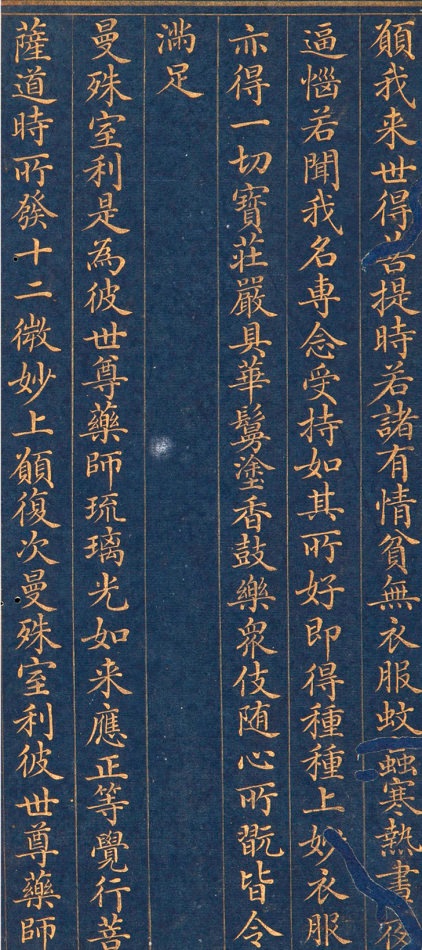 願我来世得菩提時若諸有情貧無衣服蚊䖟寒熱晝夜
逼惱若聞我名専念受持如其所好即得種種上妙衣服
亦得一切寶莊嚴具華鬘塗香鼓樂衆伎随心所翫皆令
滿足
曼殊室利是為彼世尊藥師琉璃光如来應正等覺行菩
薩道時所發十二微妙上願復次曼殊室利彼世尊藥師